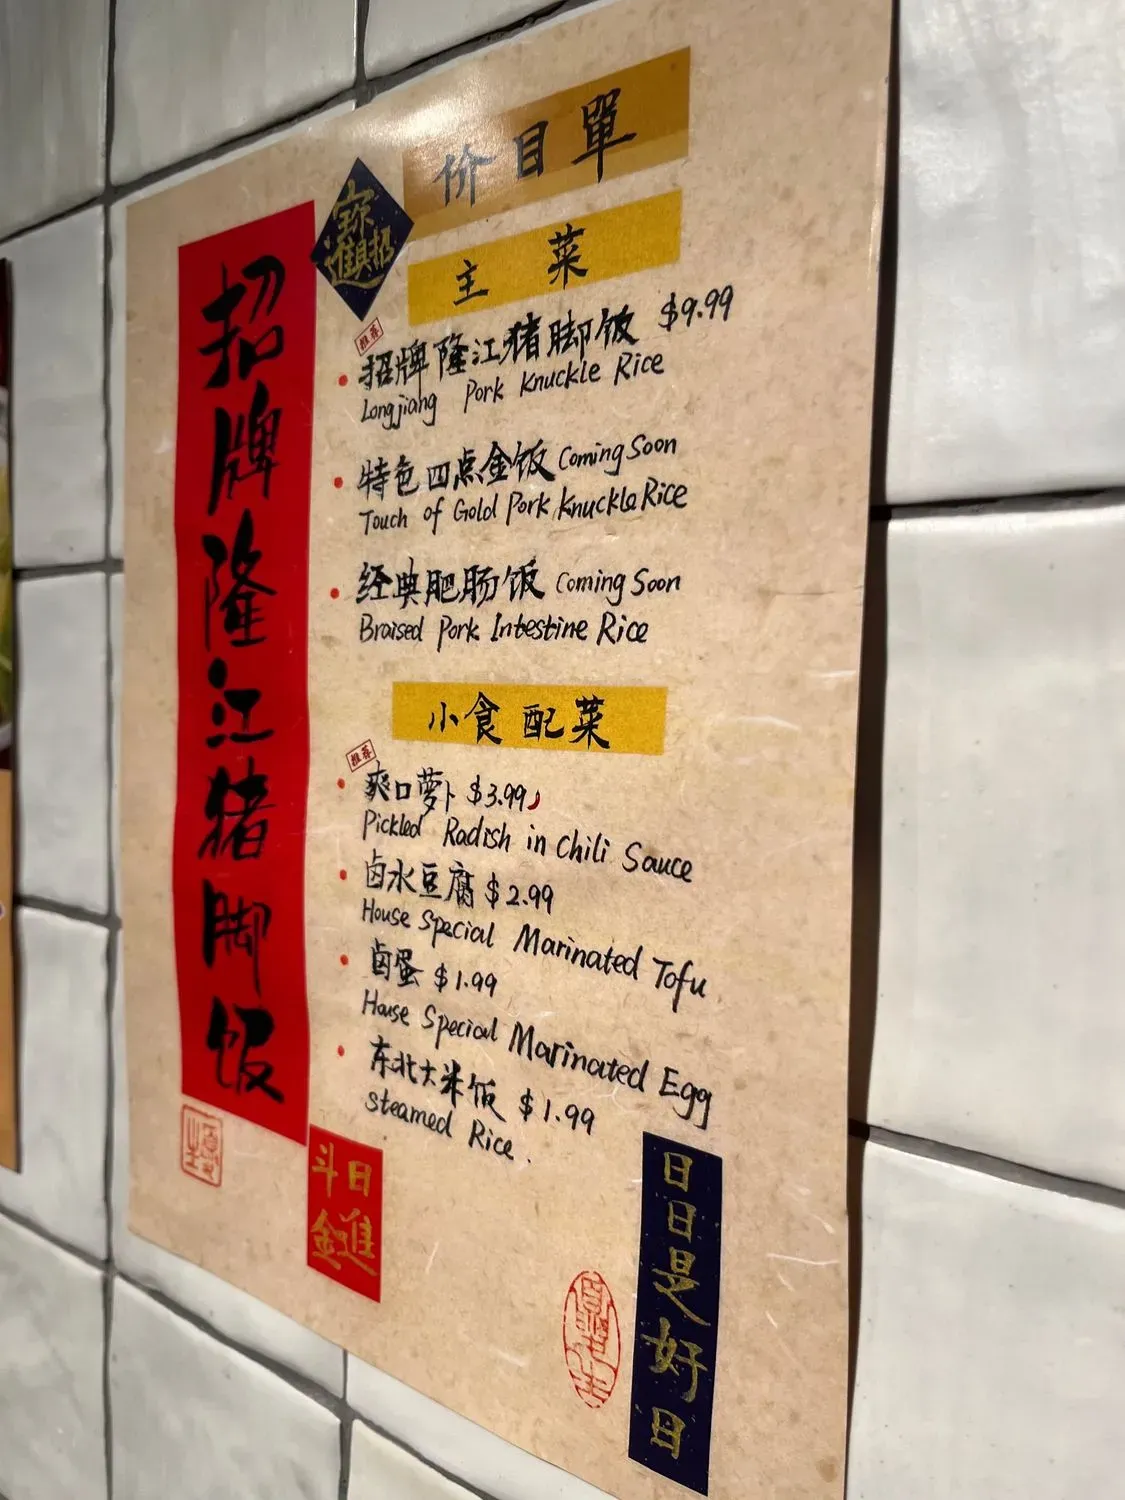 价目單
招財進寶
主菜
招牌隆江猪脚饭
推荐
招牌隆江猪脚饭 $9.99
Longjiang Pork Knuckle Rice
特色四点金饭 Coming Soon
Touch of Gold Pork Knuckle Rice
经典肥肠饭 Coming Soon
Braised Pork Intestine Rice
小食配菜
推荐
爽口萝卜 $3.99
Pickled Radish in Chili Sauce
卤水豆腐 $2.99
House Special Marinated Tofu
卤蛋 $1.99
House Special Marinated Egg
东北大米饭 $1.99
Steamed Rice.
日進
斗金
日日是好日